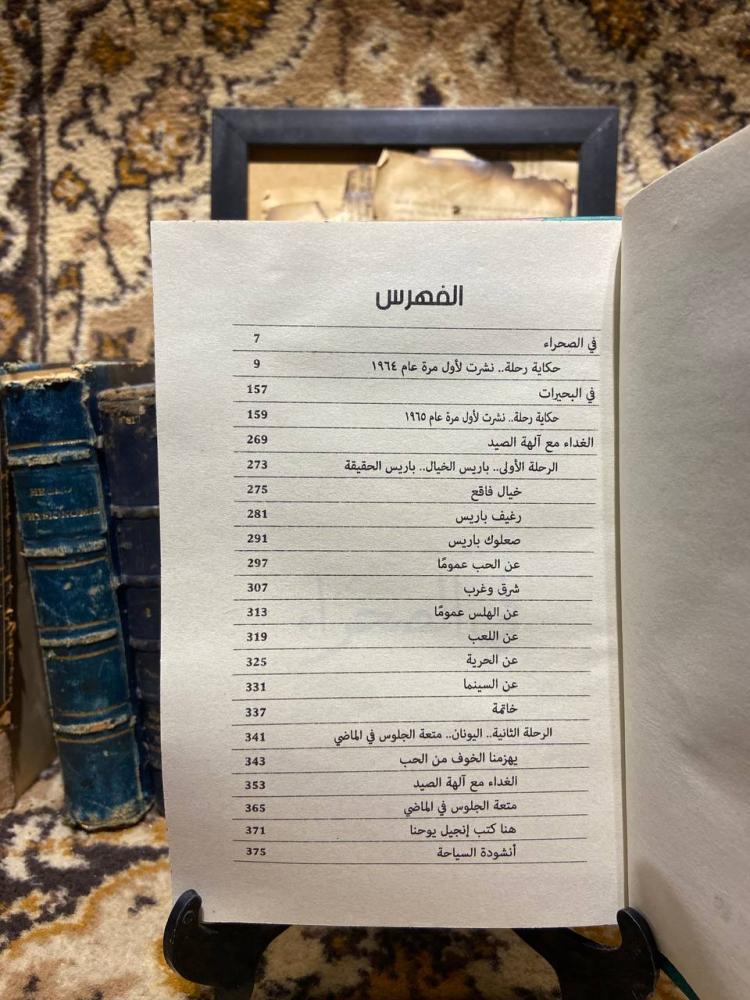 الفهرس
في الصحراء 7
حكاية رحلة.. نشرت لأول مرة عام ١٩٦٤ 9
في البحيرات 157
حكاية رحلة.. نشرت لأول مرة عام ١٩٦٥ 159
الغداء مع آلهة الصيد 269
الرحلة الأولى.. باريس الخيال.. باريس الحقيقة 273
خيال فاقع 275
رغيف باريس 281
صعلوك باريس 291
عن الحب عمومًا 297
شرق وغرب 307
عن الهلس عمومًا 313
عن اللعب 319
عن الحرية 325
عن السينما 331
خاتمة 337
الرحلة الثانية.. اليونان.. متعة الجلوس في الماضي 341
يهزمنا الخوف من الحب 343
الغداء مع آلهة الصيد 353
متعة الجلوس في الماضي 365
هنا كتب إنجيل يوحنا 371
أنشودة السياحة 375